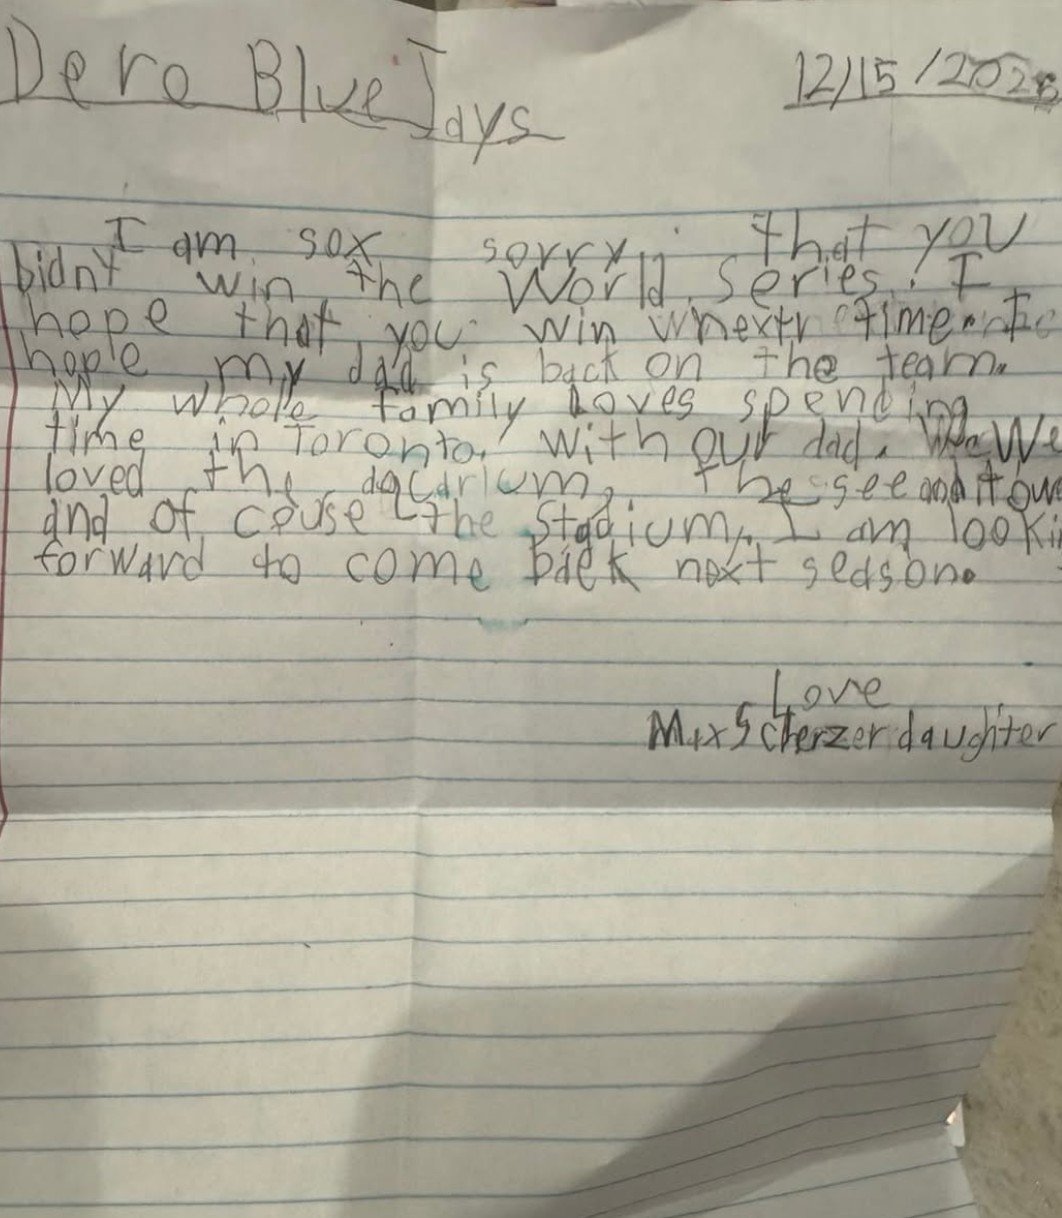 Dero Blue Jays
12/15/2025
I am sox sorry that you
bidnt win the World series. I
hope that you win whextr time. I
hople my dad is back on the team.
My whole family loves spending
time in Toronto, with our dad. We
loved the aqcarium, the see and tow
and of couse the stadium. I am lookin
forward to come back next season.
Love
Max Scherzer daughter